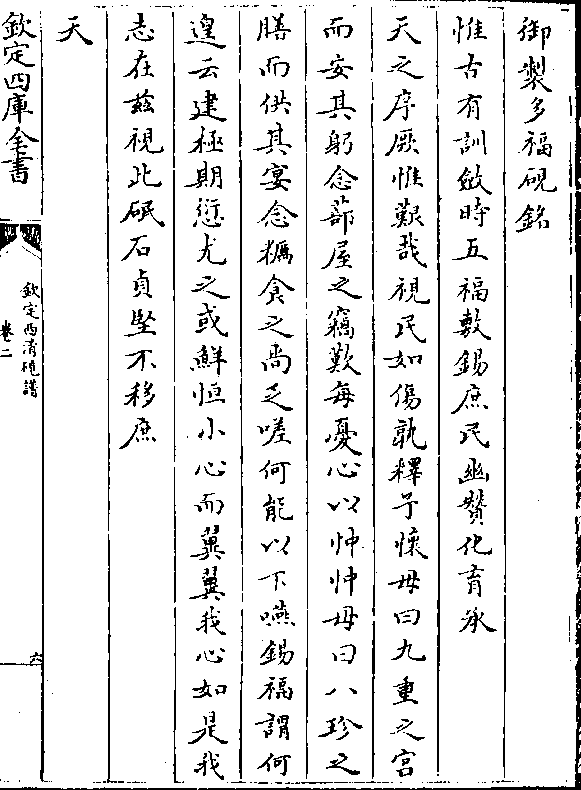 御製多福硯銘
惟古有訓斂時五福敷錫庶民幽贊化育承
天之序厥惟艱哉視民如傷孰釋予懷毋曰九重之宮
而安其躬念蔀屋之竊歎每憂心以忡忡毋曰八珍之
膳而供其宴念糲食之尚乏嗟何能以下嚥錫福謂何
遑云建極期愆尤之或鮮恒小心而翼翼我心如是我
志在茲視此砥石貞堅不移庶
天
欽定四庫全書
欽定西清硯譜
卷二
六